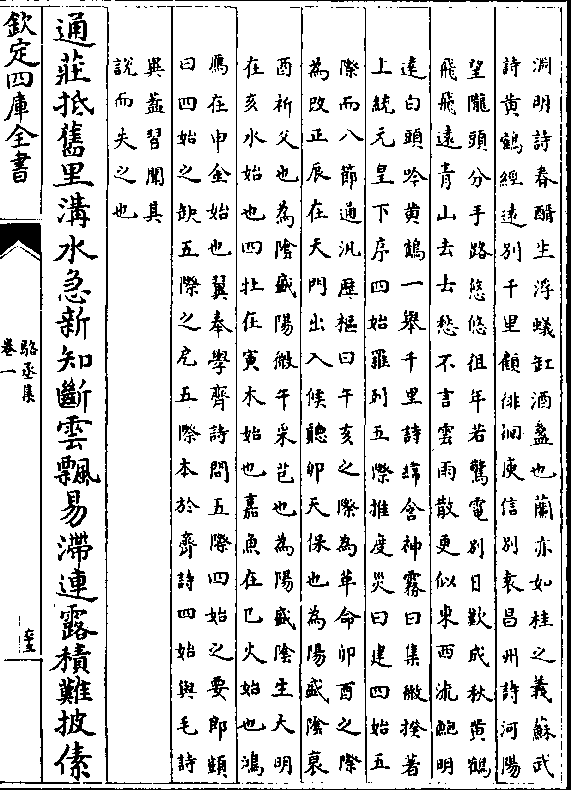 淵明詩春醪生浮蟻缸酒盎也蘭亦如桂之義蘇武
詩黃鶴經遠別千里顧徘徊庾信別袁昌州詩河陽
望隴頭分手路悠悠徂年若驚電別日欻成秋黃鶴
飛飛遠青山去去愁不言雲雨散更似東西流鮑明
遠白頭吟黃鵠一舉千里詩緯含神霧曰集微揆著
上統元皇下序四始羅列五際推度災曰建四始五
際而八節通汎歷樞曰午亥之際為革命卯酉之際
為改正辰在天門出入候聽卯天保也為陽盛陰衰
酉祈父也為陰盛陽微午采芑也為陽盛陰生大明
在亥水始也四牡在寅木始也嘉魚在巳火始也鴻
鴈在申金始也翼奉學齊詩聞五際四始之要郎顗
曰四始之缺五際之戹五際本於齊詩四始與毛詩
異蓋習聞其
說而失之也
通莊抵舊里溝水急新知斷雲飄易滯連露積難披傃
欽定四庫全書
駱丞集
卷一